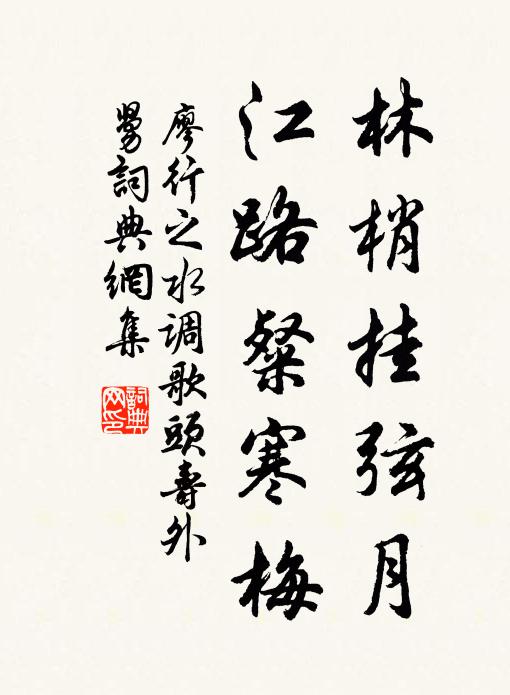 林梢挂弦月
江路粲寒梅
廖行之水调歌頭壽外
舅詞典網集
詞典
网印